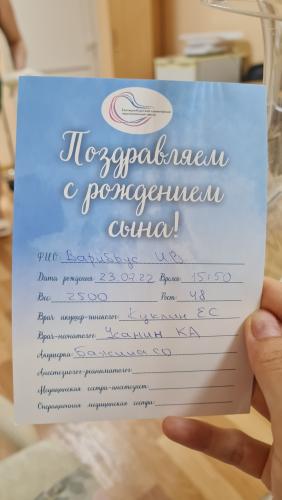 Екатеринбургский клинический
перинатальный центр
Поздравляем
с рождением
сына!
ФИО Варибрус ИВ
Дата рождения 23.02.22 Время 15:50
Вес 2500 Рост 48
Врач акушер-гинеколог Куклин ЕС
Врач-неонатолог Жанин КА
Акушерка Бажина СО
Анестезиолог-реаниматолог
Медицинская сестра-анестезист
Операционная медицинская сестра